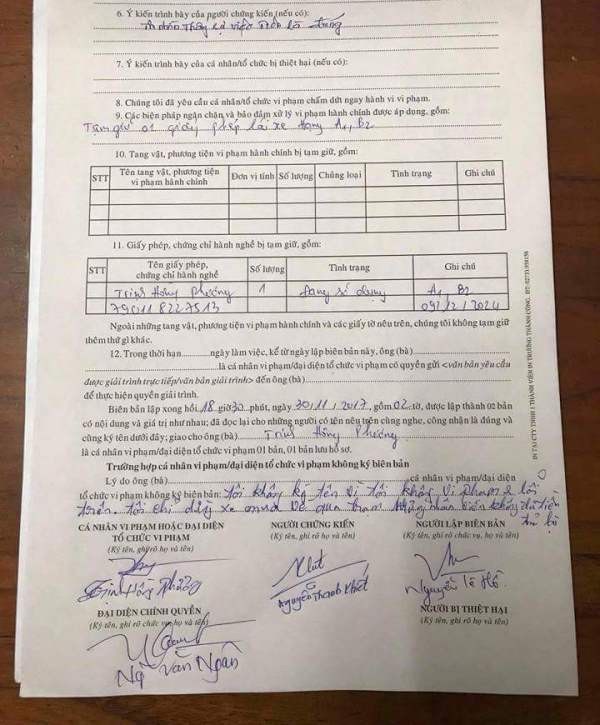 6. Ý kiến trình bày của người chứng kiến (nếu có):
việc trên là đúng
7. Ý kiến trình bày của cá nhân/tổ chức bị thiệt hại (nếu có):
8. Chúng tôi đã yêu cầu cá nhân/tổ chức vi phạm chấm dứt ngay hành vi vi phạm.
9. Các biện pháp ngăn chặn và bảo đảm xử lý vi phạm hành chính được áp dụng, gồm:
Tạm giữ 01 giấy phép lái xe hạng A1, B2
10. Tang vật, phương tiện vi phạm hành chính bị tạm giữ, gồm:
STT Tên tang vật, phương tiện vi phạm hành chính Đơn vị tính Số lượng Chủng loại Tình trạng Ghi chú
11. Giấy phép, chứng chỉ hành nghề bị tạm giữ, gồm:
STT Tên giấy phép, chứng chỉ hành nghề Số lượng Tình trạng Ghi chú
Trịnh Hồng Phương 1 Đang sử dụng A1, B2
790118227513
Ngoài những tang vật, phương tiện vi phạm hành chính và các giấy tờ nêu trên, chúng tôi không tạm giữ
thêm thứ gì khác.
12. Trong thời hạn.........ngày làm việc, kể từ ngày lập biên bản này, ông (bà)
là cá nhân vi phạm/đại diện tổ chức vi phạm có quyền gửi <văn bản yêu cầu
được giải trình trực tiếp/văn bản giải trình> đến ông (bà)
để thực hiện quyền giải trình.
Biên bản lập xong hồi 18 giờ 30 phút, ngày 30/11/2017, gồm 02 tờ, được lập thành 02 bản
có nội dung và giá trị như nhau; đã đọc lại cho những người có tên nêu trên cùng nghe, công nhận là đúng và
cùng ký tên dưới đây; giao cho ông (bà) Trịnh Hồng Phương
là cá nhân vi phạm/đại diện tổ chức vi phạm 01 bản, 01 bản lưu hồ sơ.
Trường hợp cá nhân vi phạm/đại diện tổ chức vi phạm không ký biên bản
Lý do ông (bà) cá nhân vi phạm/đại diện
tổ chức vi phạm không ký biên bản: tôi không ký tên vì tôi không vi phạm 2 lỗi
trên. tôi chỉ xe qua trạm nhưng nhân viên không
CÁ NHÂN VI PHẠM HOẶC ĐẠI DIỆN TỔ CHỨC VI PHẠM NGƯỜI CHỨNG KIẾN NGƯỜI LẬP BIÊN BẢN
(Ký tên, ghi rõ họ và tên) (Ký tên, ghi rõ họ và tên) (Ký tên, ghi rõ chức vụ, họ và tên)
Trịnh Hồng Phương Nguyễn Thanh Khiết
ĐẠI DIỆN CHÍNH QUYỀN NGƯỜI BỊ THIỆT HẠI
(Ký tên, ghi rõ chức vụ, họ và tên) (Ký tên, ghi rõ họ và tên)
Ngô Văn Ngân